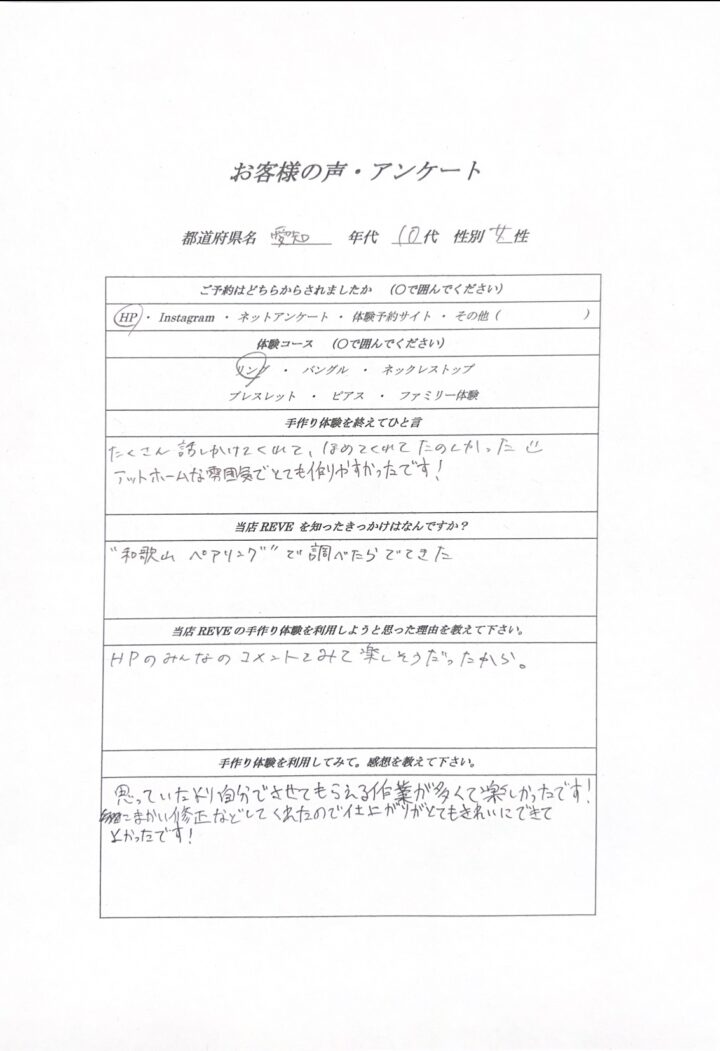 お客様の声・アンケート
都道府県名 愛知 年代 10代 性別 女性
ご予約はどちらからされましたか （○で囲んでください）
HP ・ Instagram ・ ネットアンケート ・ 体験予約サイト ・ その他（ ）
体験コース （○で囲んでください）
リング ・ バングル ・ ネックレストップ
ブレスレット ・ ピアス ・ ファミリー体験
手作り体験を終えてひと言
たくさん話しかけてくれて、ほめてくれてたのしかった
アットホームな雰囲気でとても作りやすかったです！
当店 REVE を知ったきっかけはなんですか？
"和歌山 ペアリング"で調べたらでてきた
当店 REVE の手作り体験を利用しようと思った理由を教えて下さい。
HPのみんなのコメントをみて楽しそうだったから。
手作り体験を利用してみて。感想を教えて下さい。
思っていたより自分でさせてもらえる作業が多くて楽しかったです！
こまかい修正などしてくれたので仕上がりがとてもきれいにできて
よかったです！